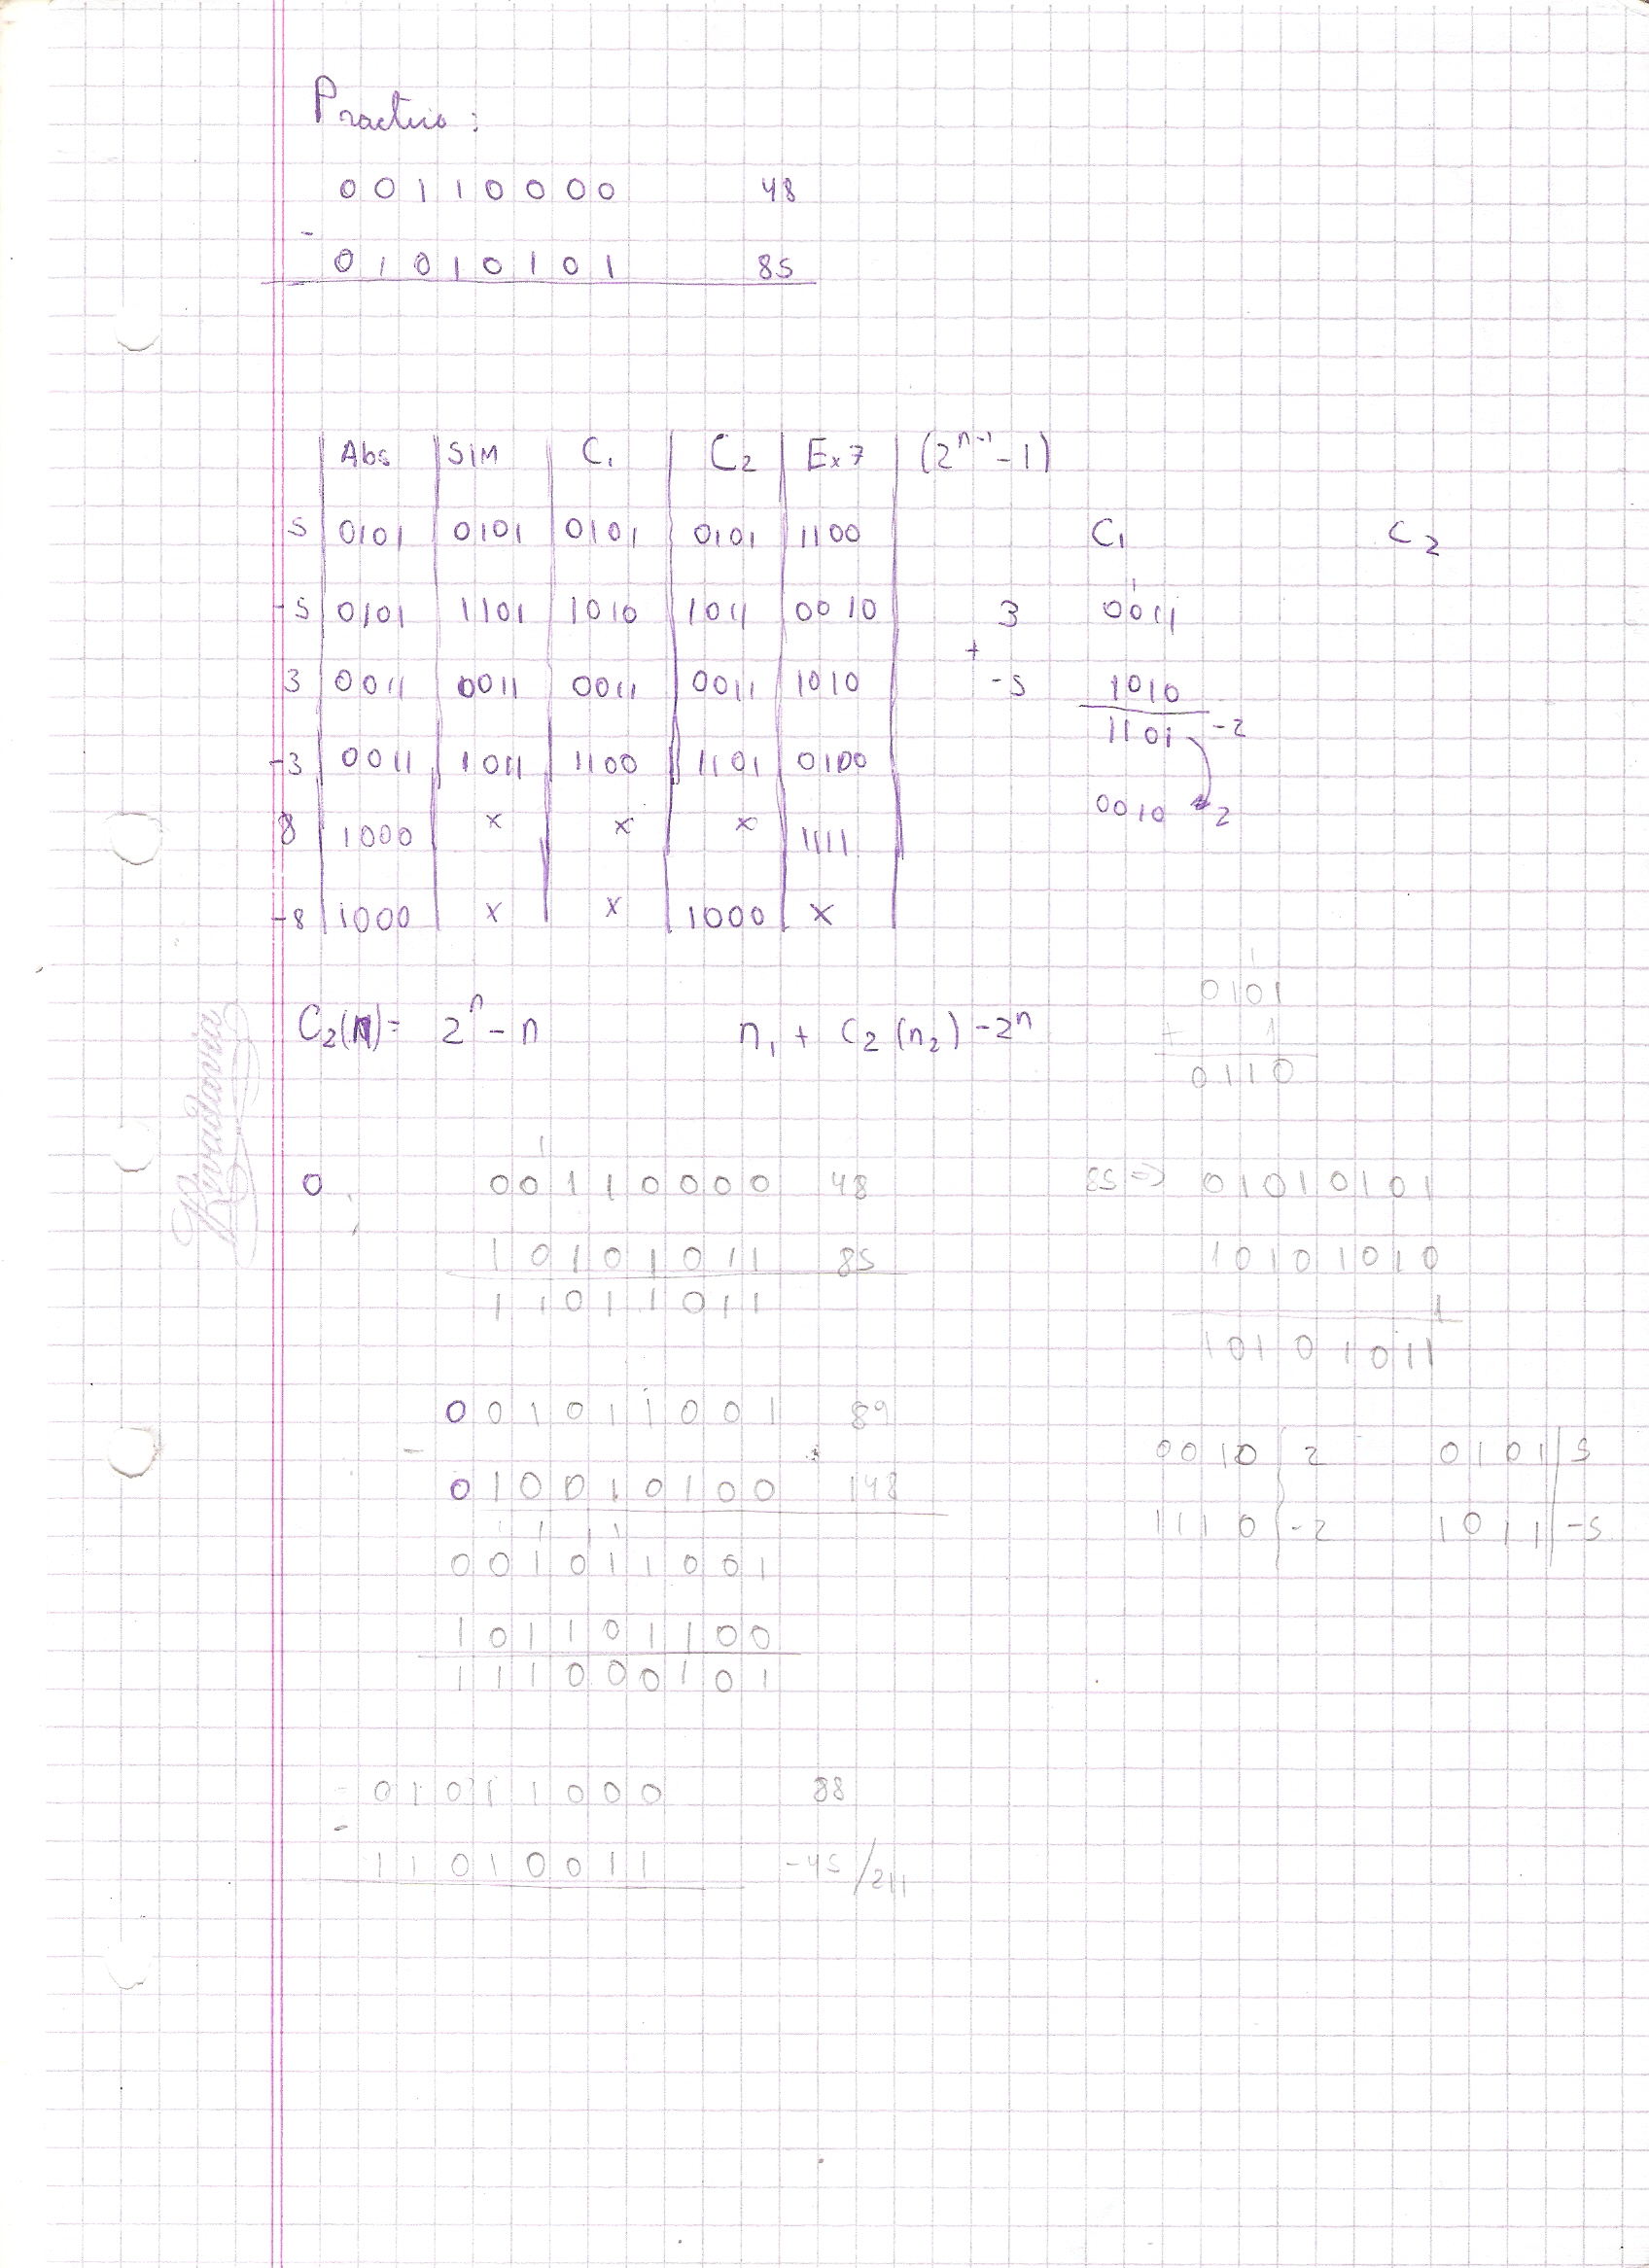 Practico:
00110000 48
-
01010101 85
Abs SIM C₁ C₂ Ex7 (2ⁿ⁻¹-1)
5 0101 0101 0101 0101 1100
-5 0101 1101 1010 1011 0010
3 0011 0011 0011 0011 1010
-3 0011 1011 1100 1101 0100
8 1000 x x x 1111
-8 1000 x x 1000 x
C₁ C₂
1
3 0011
+
-5 1010
1101 -2
0010 2
C₂(N)= 2ⁿ-n n₁ + C₂(n₂) -2ⁿ
1
0101
+ 1
0110
1
0 00110000 48
10101011 85
11011011
85 => 01010101
10101010
1
10101011
001011001 89
-
010010100 148
1 1 1 1
001011001
101101100
111000101
0010 2 0101 5
1110 -2 1011 -5
01011000 88
-
11010011 -45/211
Rivadavia